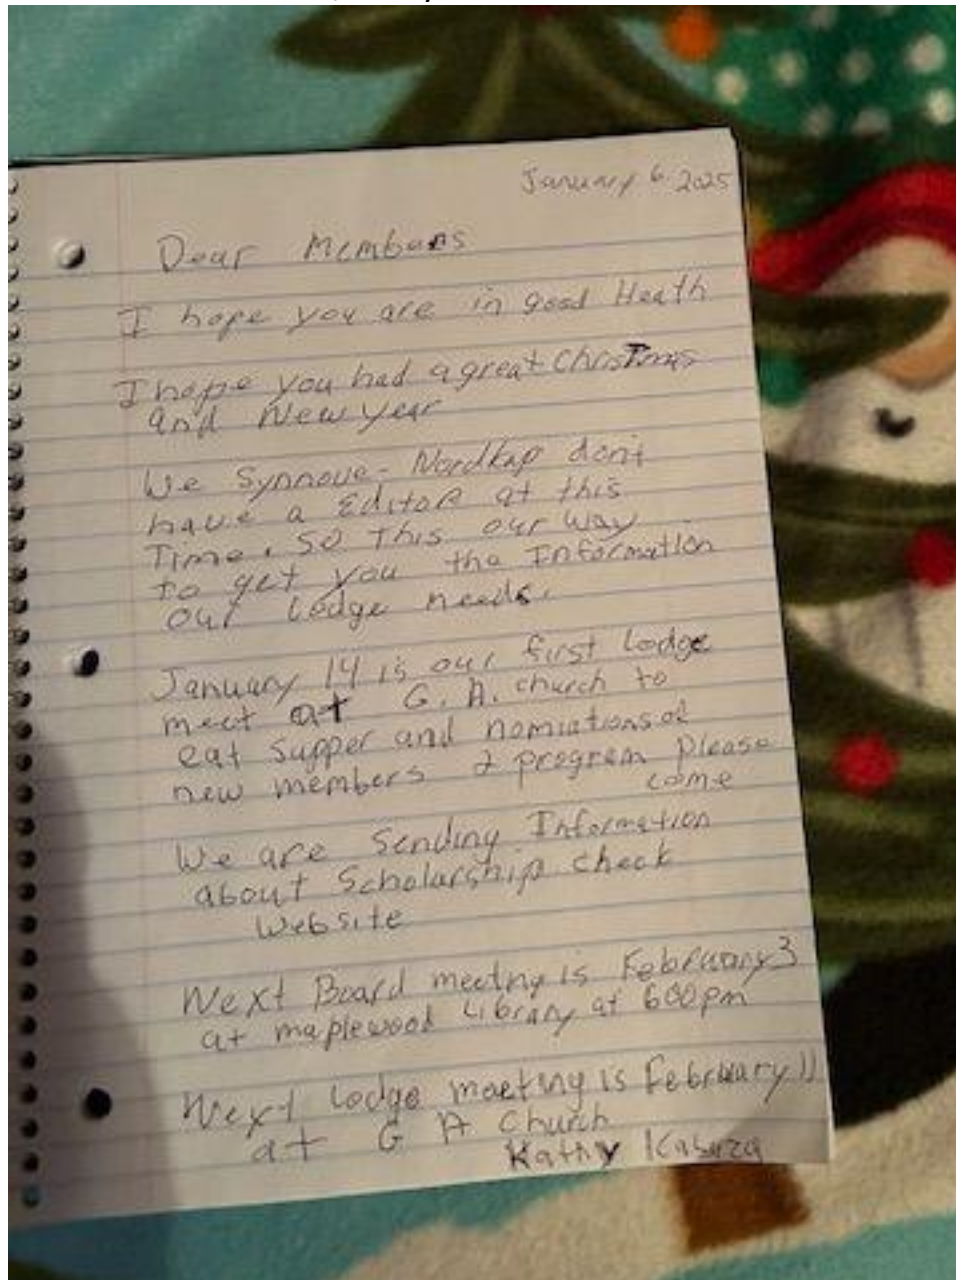 January 6 2025
Dear Members
I hope you are in good Heath
I hope you had a great Christmas
and New year
We Synnove-Nordkap dont
have a Editor at this
Time. So This our way
to get you the Information
our Lodge needs.
January 14 is our first Lodge
meet at G. A. church to
eat supper and nomiations of
new members & program please
come
We are Sending Information
about Scholarship check
Website
Next Board meeting is February 3
at maplewood Library at 600pm
Next Lodge meeting is February 11
at G A Church
Kathy